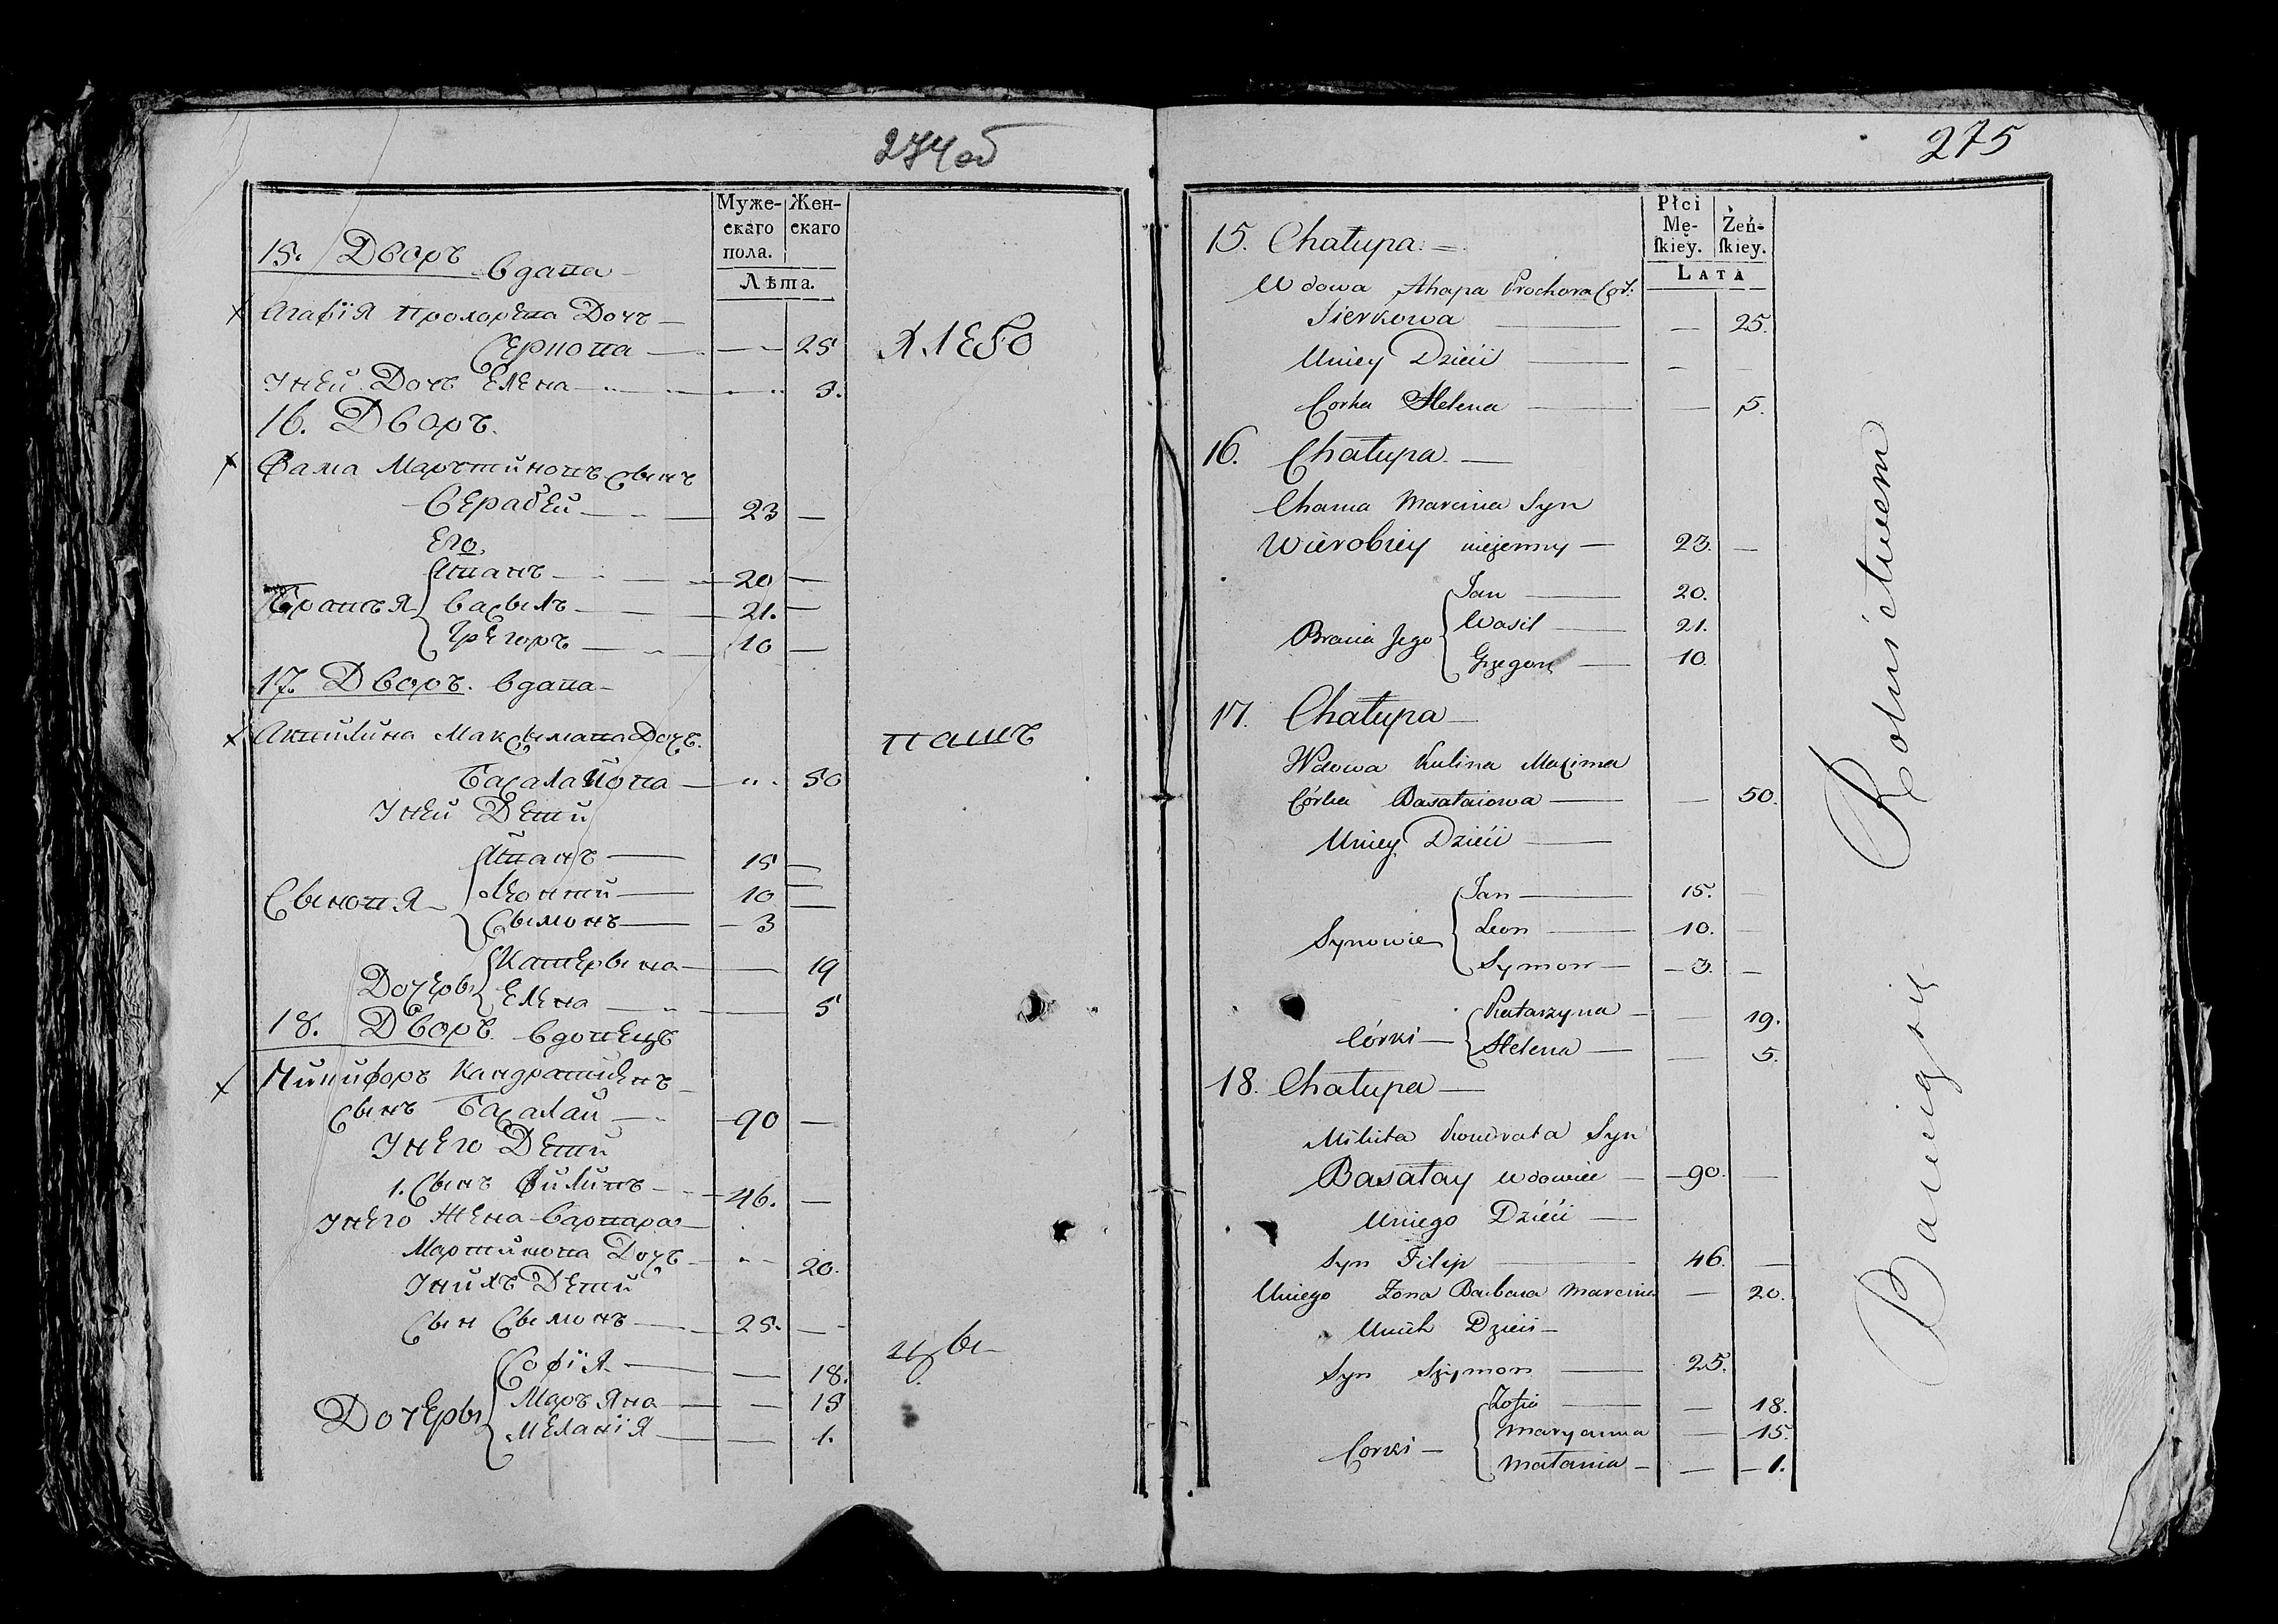 274об
Муже-
скаго
пола.
Жен-
скаго
Лѣта.
15. Дворъ вдава
Агафія Прохорева Дочъ
Серкова — 25
Уней Дочъ Елена — 5.
16. Дворъ.
Фама Марътиновъ Сынъ
Веравей — 23 —
Его
Иванъ — 20 —
Братъя Васыль — 21. —
Грегоръ — 10 —
17. Дворъ. вдава
Акулина Максымава Дочъ.
Басалайова — 50
Уней Дети
Иванъ — 15 —
Сыновя Леонтій — 10 —
Сымонъ — 3
Катерына — 19
Дочеры Елена — 5
18. Дворъ. вдовецъ
Никифоръ Кандратиевъ
Сынъ Басалай — 90 —
Унего Дети
1. Сынъ Филипъ — 46. —
Унего Жена Варвара
Мартинова Дочъ — 20.
Унихъ Дети
Сын Сымонъ — 25. —
Софія — 18.
Маръяна — 15
Дочеры Меланія — 1.
хлебо
паше
цы
275
Płci
Mę-
skiey.
Żeń-
skiey.
LATA
15. Chałupa. =
Wdowa Ahapa Prochora Cór:
Sierkowa — 25.
Uniey Dzieći
Corka Helena — 5.
16. Chałupa. —
Chama Marcina Syn
Wierobiey nieżenny — 23. —
Jan — 20.
Bracia Jego Wasil — 21.
Grzegorz — 10.
17. Chałupa —
Wdowa Kulina Maxima
Córka Basałaiowa — 50.
Uniey Dzieći —
Jan — 15. —
Synowie Leon — 10. —
Symon — 3. —
Katarzyna — 19.
Córki — Helena — 5.
18. Chałupa —
Mikita Kondrata Syn
Basałay wdowiec — 90. —
Uniego Dzieći —
Syn Filip — 46. —
Uniego Żona Barbara Marcina — 20.
Unich Dzieci —
Syn Szymon — 25.
Zofia — 18.
Maryanna — 15.
Corki — Małania — 1.
Bawią się Rolnictwem